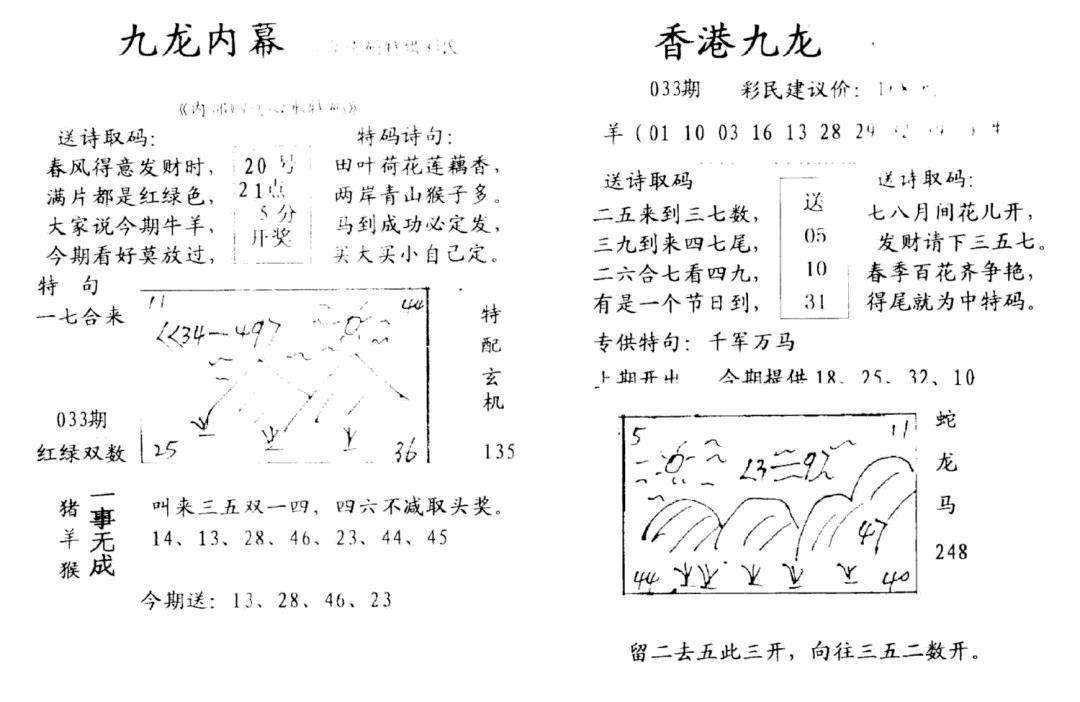 九龙内幕
送诗取码：
春风得意发财时，
满片都是红绿色，
大家说今期牛羊，
今期看好莫放过，
20号
21点
5分
开奖
特码诗句：
田叶荷花莲藕香，
两岸青山猴子多。
马到成功必定发，
买大买小自己定。
特 句
一七合来
033期
红绿双数
11
44
25
36
特
配
玄
机
135
猪
羊
猴
一事无成
叫来三五双一四，四六不减取头奖。
14、13、28、46、23、44、45
今期送：13、28、46、23
香港九龙
033期 彩民建议价：
羊（01 10 03 16 13 28 29
送诗取码
二五来到三七数，
三九到来四七尾，
二六合七看四九，
有是一个节日到，
送
05
10
31
送诗取码：
七八月间花儿开，
发财请下三五七。
春季百花齐争艳，
得尾就为中特码。
专供特句：千军万马
上期开出 今期提供18、25、32、10
5
11
47
44
40
蛇
龙
马
248
留二去五此三开，向往三五二数开。